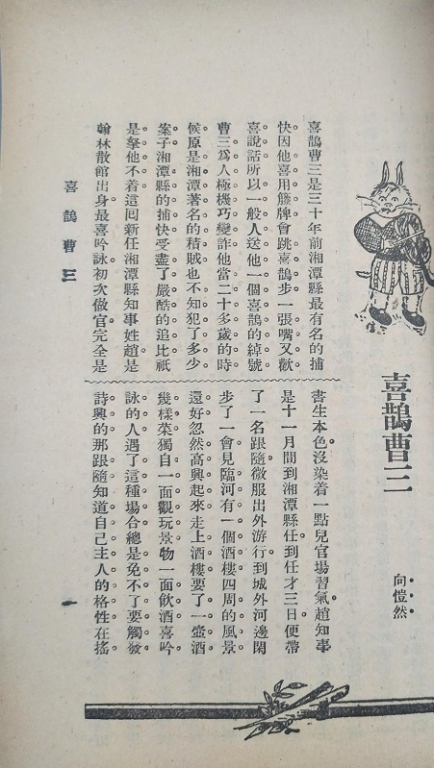 喜鵲曹三
向愷然
喜鵲曹三是三十年前湘潭縣最有名的捕
快因他喜用籐牌會跳喜鵲步一張嘴又歡
喜說話所以一般人送他一個喜鵲的綽號
曹三爲人極機巧變詐他當二十多歲的時
候原是湘潭著名的積賊也不知犯了多少
案子湘潭縣的捕快受盡了嚴酷的追比祇
是拏他不着這囘新任湘潭縣知事姓趙是
翰林散館出身最喜吟詠初次做官完全是
書生本色沒染着一點兒官場習氣趙知事
是十一月間到湘潭縣任到任才三日便帶
了一名跟隨微服出外游行到城外河邊閑
步了一會見臨河有一個酒樓四周的風景
還好忽然高興起來走上酒樓要了一壺酒
幾樣菜獨自一面觀玩景物一面飲酒喜吟
詠的人遇了這種場合總是免不了要觸發
詩興的那跟隨知道自己主人的格性在搖
喜鵲曹三
一